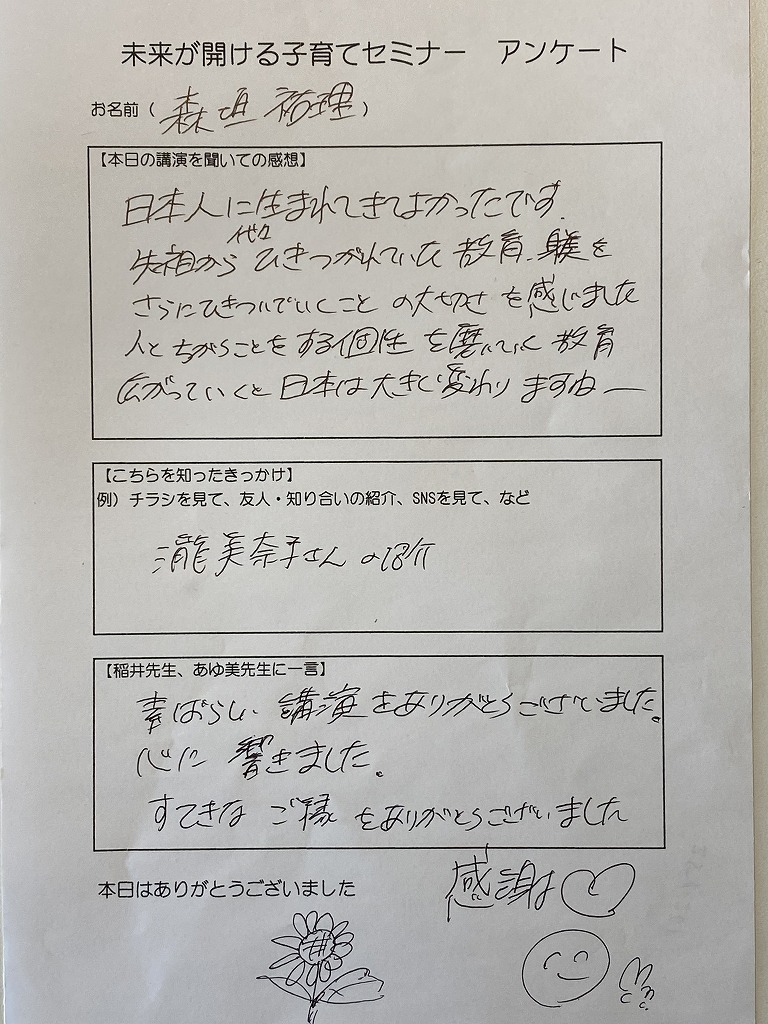 未来が開ける子育てセミナー　アンケート
お名前（森垣 裕理）
【本日の講演を聞いての感想】
日本人に生まれてきてよかったです.
代々
先祖から ひきつがれていた 教育、躾を
さらにひきついでいくこと の大切さ を感じました
人と ちがうことを する個性 を磨いていく 教育
広がっていくと 日本は大きく変わり ますねー
【こちらを知ったきっかけ】
例）チラシを見て、友人・知り合いの紹介、SNSを見て、など
瀧 美奈子さん の紹介
【稲井先生、あゆ美先生に一言】
素ばらしい 講演 をありがとうございました。
心に 響きました。
すてきな ご縁 をありがとうございました
本日はありがとうございました
感謝